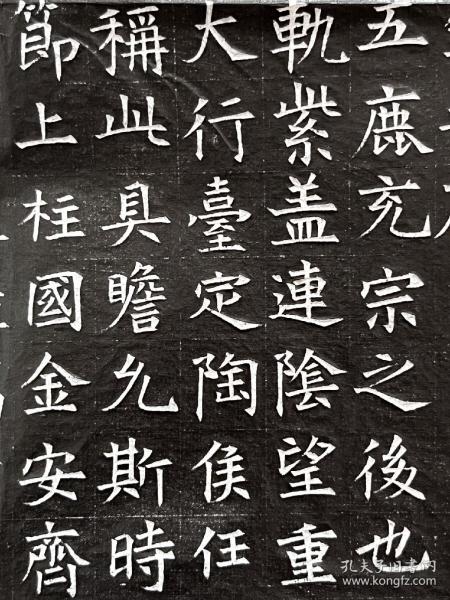 五鹿充宗之後也
軌紫盖連陰望重
大行臺定陶侯任
稱此具瞻允斯時
節上柱國金安齊
孔夫子旧书网
www.kongfz.com